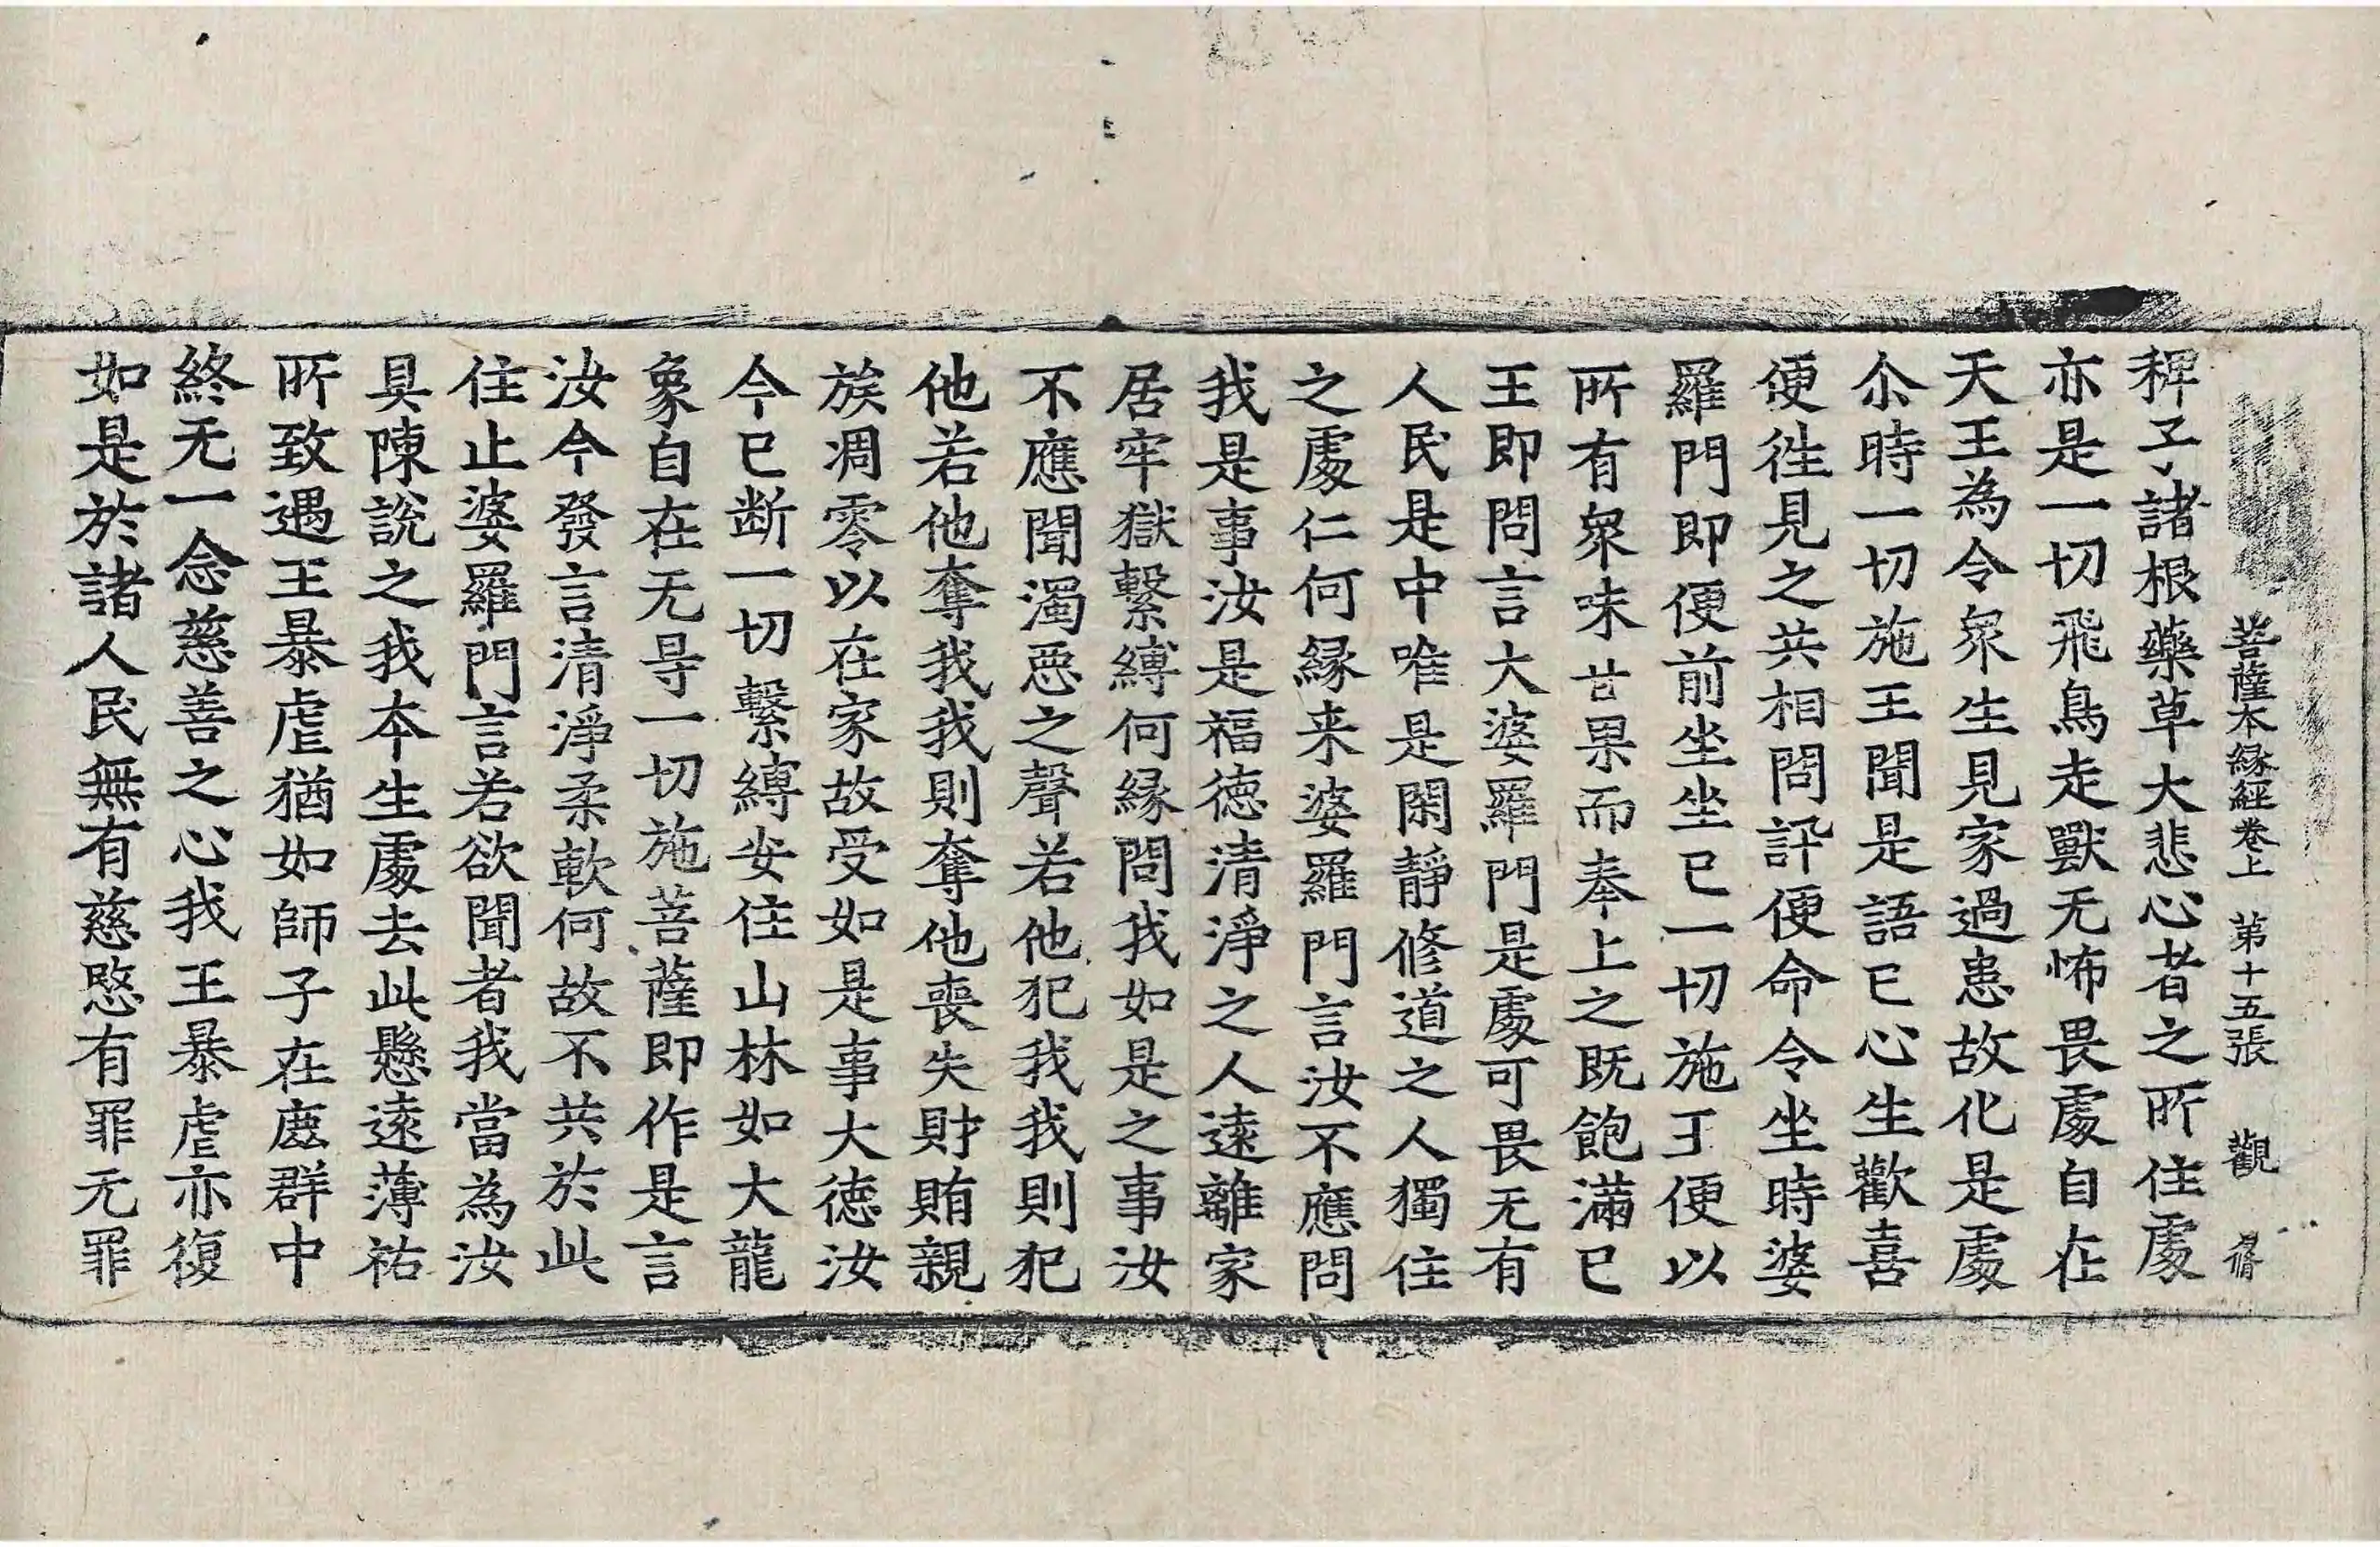 菩薩本縁經卷上 第十五張 觀
稗子諸根藥草大悲心者之所住處
亦是一切飛鳥走獸无怖畏處自在
天王為令衆生見家過患故化是處
尒時一切施王聞是語已心生歡喜
便徃見之共相問訊便命令坐時婆
羅門即便前坐坐已一切施王便以
所有衆味甘果而奉上之既飽滿已
王即問言大婆羅門是處可畏无有
人民是中唯是閑靜修道之人獨住
之處仁何縁来婆羅門言汝不應問
我是事汝是福德清淨之人遠離家
居牢獄繫縛何縁問我如是之事汝
不應聞濁惡之聲若他犯我我則犯
他若他奪我我則奪他喪失財賄親
族凋零以在家故受如是事大德汝
今已断一切繫縛安住山林如大龍
象自在无㝵一切施菩薩即作是言
汝今發言清淨柔軟何故不共於此
住止婆羅門言若欲聞者我當為汝
具陳說之我本生處去此懸遠薄祐
所致遇王暴虐猶如師子在鹿群中
終无一念慈善之心我王暴虐亦復
如是於諸人民無有慈愍有罪无罪